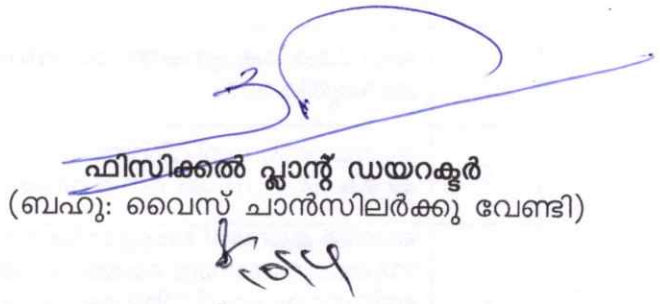 ഫിസിക്കൽ പ്ലാന്റ് ഡയറക്ടർ
(ബഹു: വൈസ് ചാൻസിലർക്കു വേണ്ടി)